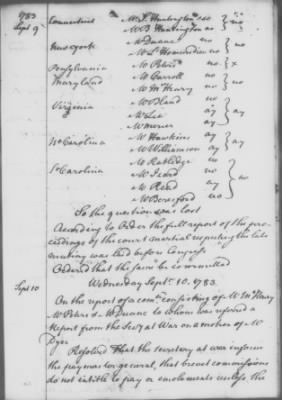 1783
Sept 9
Connecticut Mr S. Huntington no } no
Mr B. Huntington no
New york Mr Duane no } no
Mr L'Hommedieu no
Pensylvania Mr Peters no } x
Maryland Mr Carroll no } no
Mr McHenry no
Virginia Mr Bland no } ay
Mr Lee ay
Mr Mercer ay
No Carolina Mr Hawkins ay } ay
Mr Williamson ay
So Carolina Mr Rutledge no } no
Mr Izard no
Mr Read ay
Mr Beresford no
So the question was lost
According to Order the full report of the pro-
ceedings of the court martial respecting the late
mutiny was laid before Congress
Ordered that the same be committed
Sept 10 Wednesday Sept. 10. 1783.
On the report of a comee consisting of Mr McHenry
Mr Peters & Mr Duane to whom was referred a
Report from the Secy at War on a motion of Mr
Dyer
Resolved That the secretary at war inform
the paymaster general, that brevet commissions
do not intitle to pay or emoluments unless, the